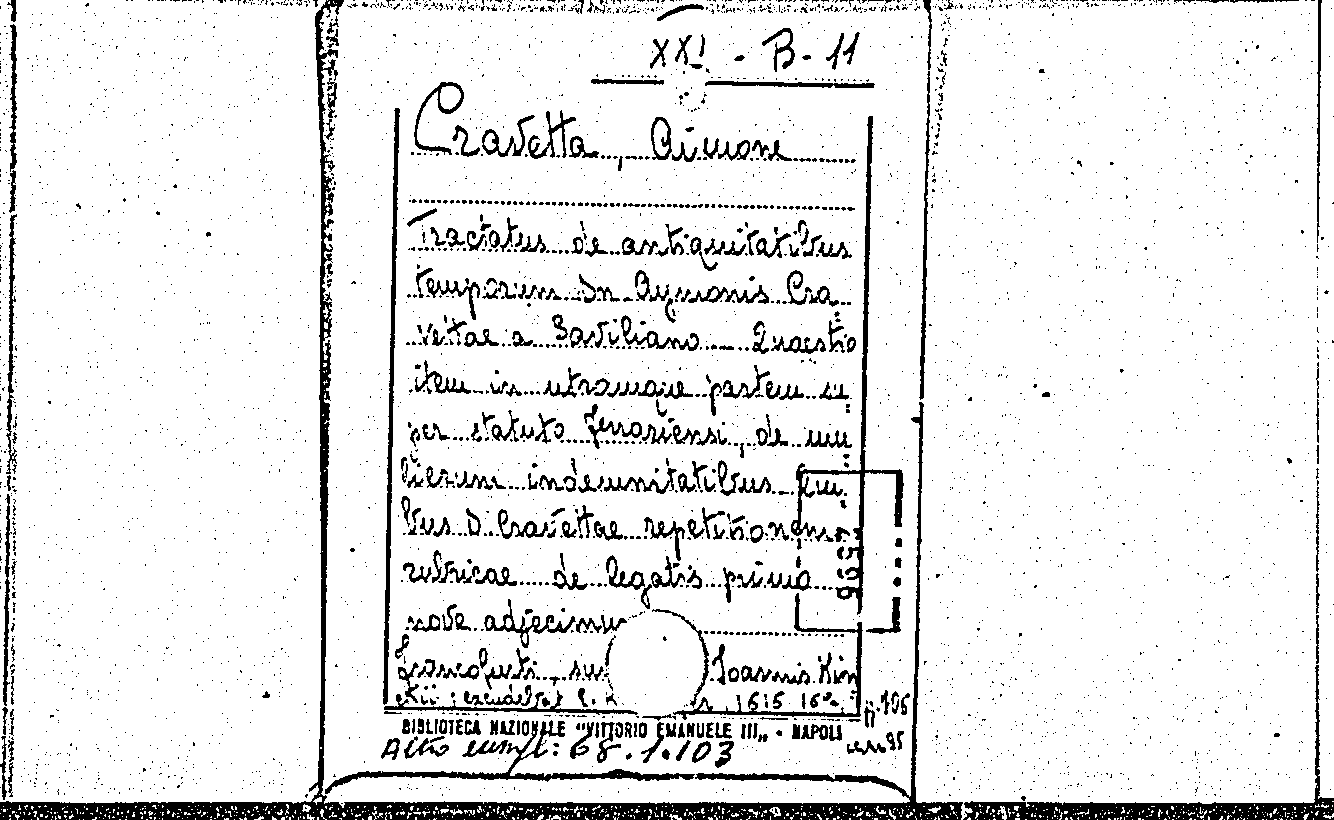 XXI - B - 11
Cravetta, Aimone
Tractatus de antiquitatibus
temporum Dn Aymonis Cra
vettae a Saviliano Quaestio
item in utramque partem su
per statuto ferrariensi, de mu
lierum indemnitatibus qui
bus D. Cravettae repetitionem
rubricae de legatis primo
nove adjecimus
Francofurti, Joannis Kin
ckii : 1615 16°
BIBLIOTECA NAZIONALE "VITTORIO EMANUELE III" - NAPOLI
Altro esempl: 68.1.103